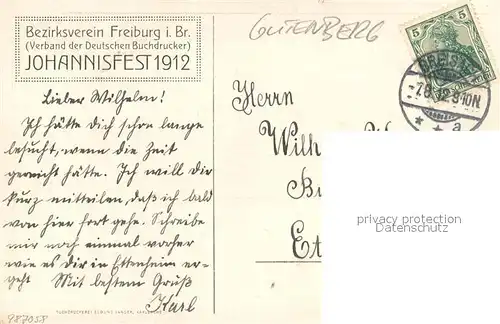 Bezirksverein Freiburg i. Br.
(Verband der Deutschen Buchdrucker)
JOHANNISFEST 1912
GUTENBERG
5 5
Lieber Wilhelm!
Ich hätte dich schon lange
besucht, wenn die Zeit
gereicht hätte. Ich will dir
kurz mitteilen, daß ich bald
von hier fort gehe. Schreibe
mir noch einmal vorher
wie es dir in Ettenheim er-
geht Mit bestem Gruß
Karl
Herrn
Wilh
Bu
Et
privacy protection
Datenschutz